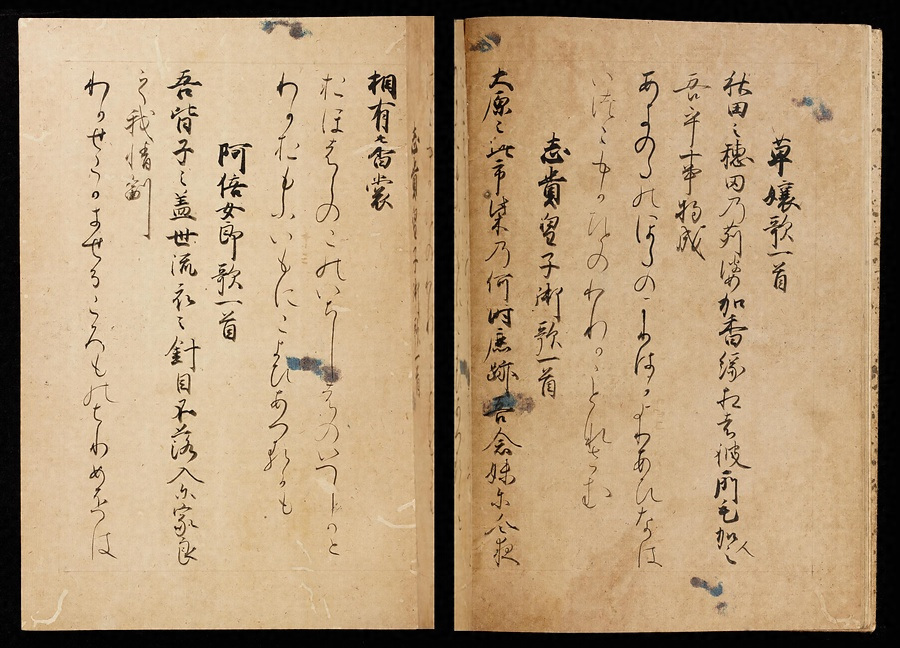 草嬢歌一首
秋田之穂田乃苅婆加香縁相者彼所毛加人之
吾乎事将成
あきのたのほたのかりはかかよりあひなは
こもかひとのわかことなさむ
志貴皇子御歌一首
大原之此市柴乃何時鹿跡吾念妹尓今夜
相有香裳
おほはらのこのいちしはのいつしかと
わかおもふいもにこよひあへるかも
阿倍女郎歌一首
吾背子之盖世流衣之針目不落入尓家良
之我情副
わかせこかきせるころものはりめ